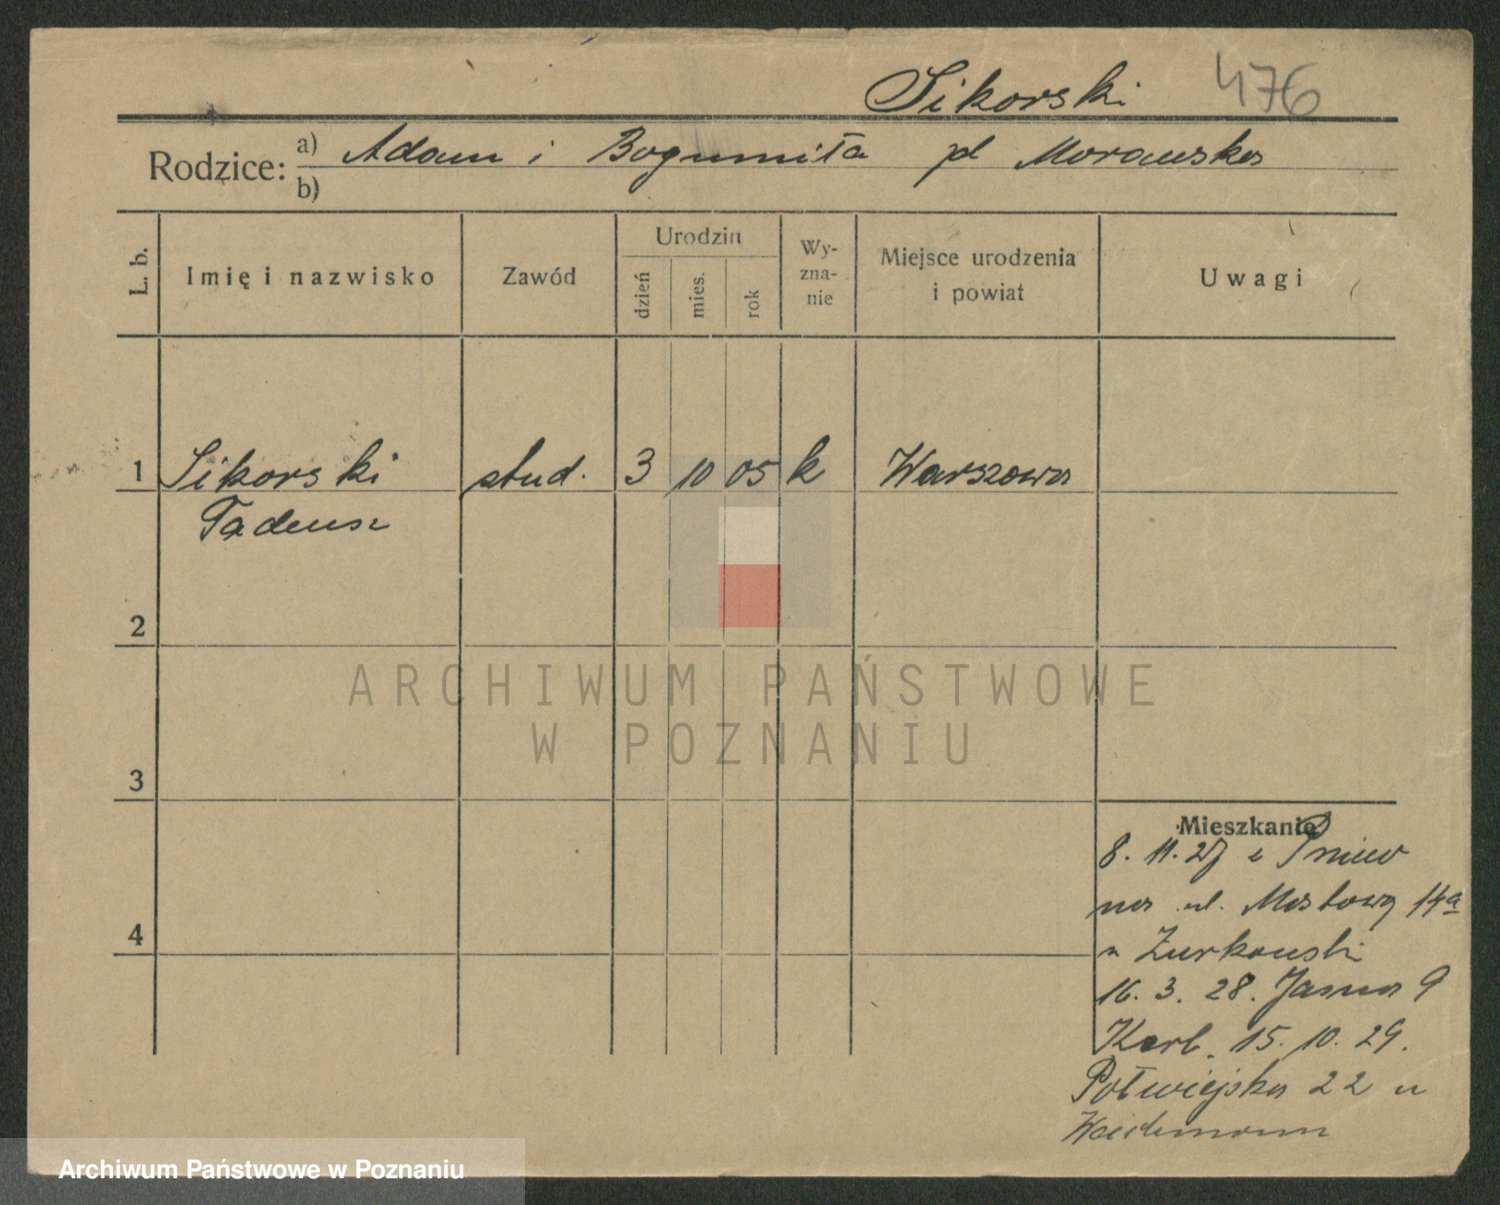 Sikorski 476
Rodzice: a) Adam i Bogumiła pd Morawska
b)
L. b. Imię i nazwisko Zawód Urodzin dzień mies. rok Wy-zna-nie Miejsce urodzenia i powiat Uwagi
1 Sikorski stud. 3 10 05 k Warszawa
Tadeusz
2
ARCHIWUM PAŃSTWOWE
W POZNANIU
3
Mieszkanie
8. 11. 27 z Pniew
na ul. Mostowa 14a
4
u Żurkowski
16. 3. 28. Jasna 9
15. 10. 29.
Półwiejska 22 u
Archiwum Państwowe w Poznaniu